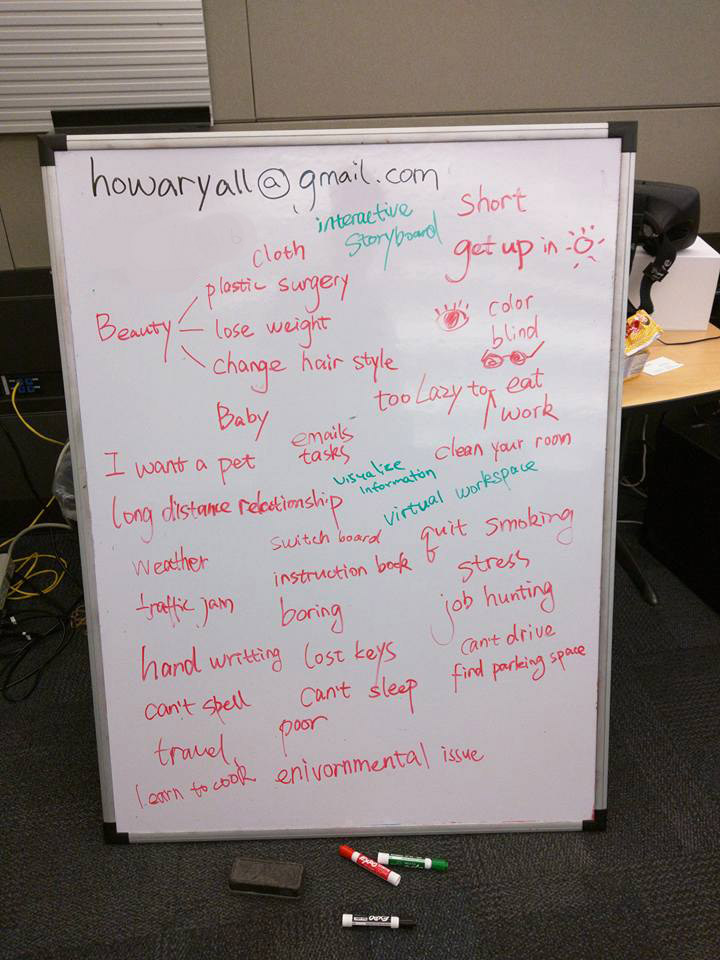 howaryall@gmail.com
interactive
storyboard
short
get up in
cloth
plastic surgery
Beauty
lose weight
change hair style
color
blind
Baby
too Lazy to eat
work
emails
tasks
clean your room
I want a pet
visualize
information
virtual workspace
long distance relationship
weather
switch board
quit smoking
instruction book
stress
traffic jam
boring
job hunting
hand writting
lost keys
can't drive
find parking space
can't spell
can't sleep
poor
travel
learn to cook
enivornmental issue
EXPO